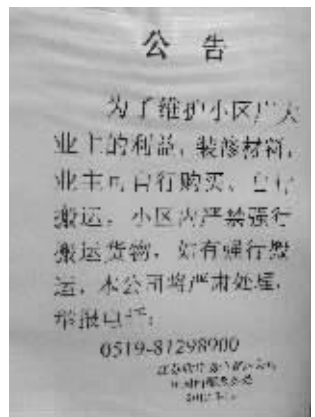 公 告
为了维护小区广大
业主的利益，装修材料，
业主可自行购买、自行
搬运。小区内严禁强行
搬运货物，如有强行搬
运，本公司将严肃处理，
举报电话：
0519-81298900